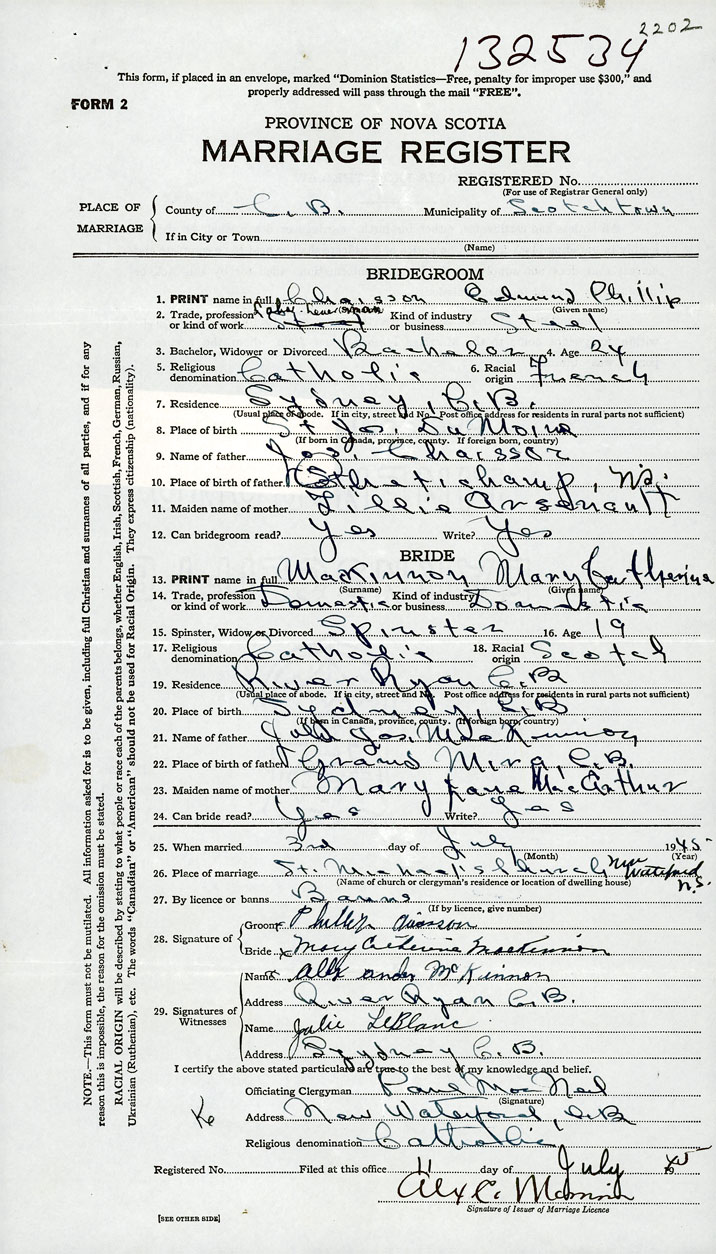 2202
132534
This form, if placed in an envelope, marked "Dominion Statistics—Free, penalty for improper use $300," and
properly addressed will pass through the mail "FREE".
FORM 2
PROVINCE OF NOVA SCOTIA
MARRIAGE REGISTER
REGISTERED No.
(For use of Registrar General only)
PLACE OF MARRIAGE
County of C. B. Municipality of Scotchtown
If in City or Town
(Name)
BRIDEGROOM
1. PRINT name in full Chaisson Edmund Phillip
(Surname) (Given name)
2. Trade, profession or kind of work Kind of industry or business Steel
3. Bachelor, Widower or Divorced Bachelor 4. Age 24
5. Religious denomination Catholic 6. Racial origin French
7. Residence Sydney, C.B.
(Usual place of abode. If in city, street and No. Post office address for residents in rural parts not sufficient)
8. Place of birth St Jos. Du Moine
(If born in Canada, province, county. If foreign born, country)
9. Name of father Jos. Chaisson
10. Place of birth of father Chetichamp, N.S.
11. Maiden name of mother Lillie Arsenault
12. Can bridegroom read? Yes Write? Yes
BRIDE
13. PRINT name in full MacKinnon Mary Catherine
(Surname) (Given name)
14. Trade, profession or kind of work Domestic Kind of industry or business Domestic
15. Spinster, Widow or Divorced Spinster 16. Age 19
17. Religious denomination Catholic 18. Racial origin Scotch
19. Residence River Ryan C.B
(Usual place of abode. If in city, street and No. Post office address for residents in rural parts not sufficient)
20. Place of birth Sydney, C.B
(If born in Canada, province, county. If foreign born, country)
21. Name of father Jos. MacKinnon
22. Place of birth of father Grand Mira, C.B.
23. Maiden name of mother Mary Jane MacArthur
24. Can bride read? Yes Write? Yes
25. When married 3rd day of July 1945
(Month) (Year)
26. Place of marriage St. Michael's Church New Waterford N.S.
(Name of church or clergyman's residence or location of dwelling house)
27. By licence or banns Banns
(If by licence, give number)
28. Signature of
Groom x Phillip Chiasson
Bride x Mary Catherine MacKinnon
29. Signatures of Witnesses
Name x Alexander McKinnon
Address River Ryan C.B.
Name Julie LeBlanc
Address Sydney C.B.
I certify the above stated particulars are true to the best of my knowledge and belief.
Officiating Clergyman Paul MacNeil
(Signature)
Address New Waterford, C.B
Religious denomination Catholic
Registered No. Filed at this office 11 day of July 1945
Signature of Issuer of Marriage Licence
[SEE OTHER SIDE]
NOTE.—This form must not be mutilated. All information asked for is to be given, including full Christian and surnames of all parties, and if for any
reason this is impossible, the reason for the omission must be stated.
RACIAL ORIGIN will be described by stating to what people or race each of the parents belongs, whether English, Irish, Scottish, French, German, Russian,
Ukrainian (Ruthenian), etc. The words "Canadian" or "American" should not be used for Racial Origin. They express citizenship (nationality).